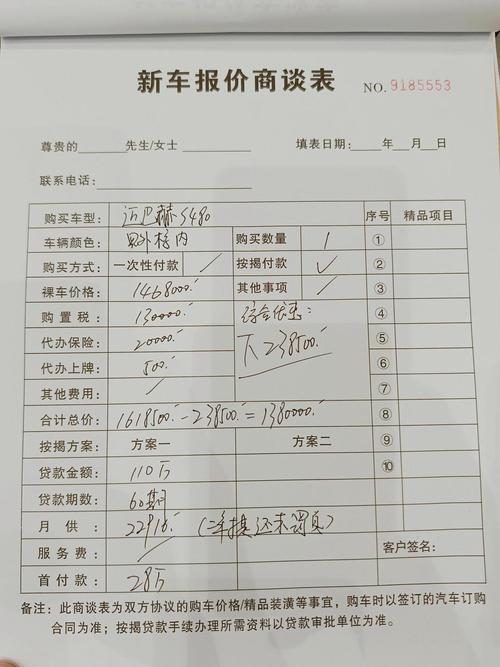 新车报价商谈表 NO. 9185553
尊贵的 先生/女士 填表日期: 年 月 日
联系电话:
购买车型: 迈巴赫S480 序号 精品项目
车辆颜色: 黑外棕内 购买数量 1 ①
购买方式: 一次性付款 / 按揭付款 ✓ ②
裸车价格: 1468000.- 其他事项 / ③
购置税: 130000.- 综合优惠: ④
代办保险: 20000.- 下238500.- ⑤
代办上牌: 500.- ⑥
其他费用: / ⑦
合计总价: 1618500.- - 238500.- = 1380000.- ⑧
按揭方案: 方案一 方案二 ⑨
贷款金额: 110万 ⑩
贷款期数: 60期
月供: 22916.-
服务费: / 客户签名:
首付款: 28万
备注: 此商谈表为双方协议的购车价格/精品装潢等事宜,购车时以签订的汽车订购
合同为准;按揭贷款手续办理所需资料以贷款审批单位为准。